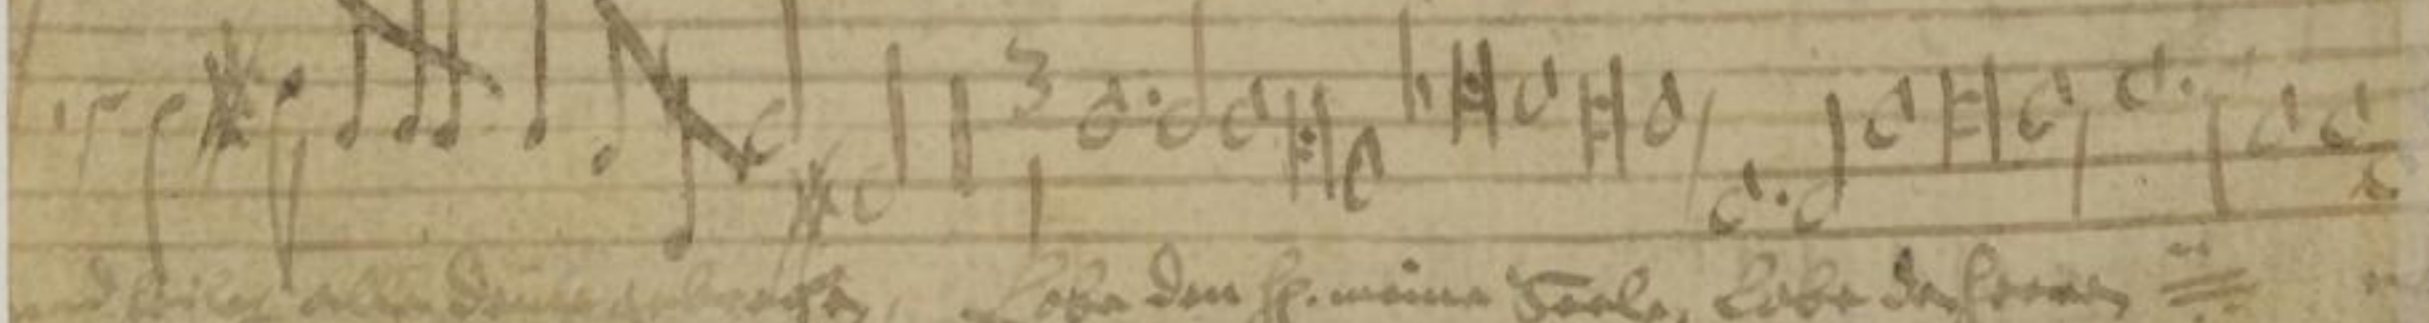 3
und heilet alle deine gebrechen, Lobe den H. meine Seele, Lobe den Herren